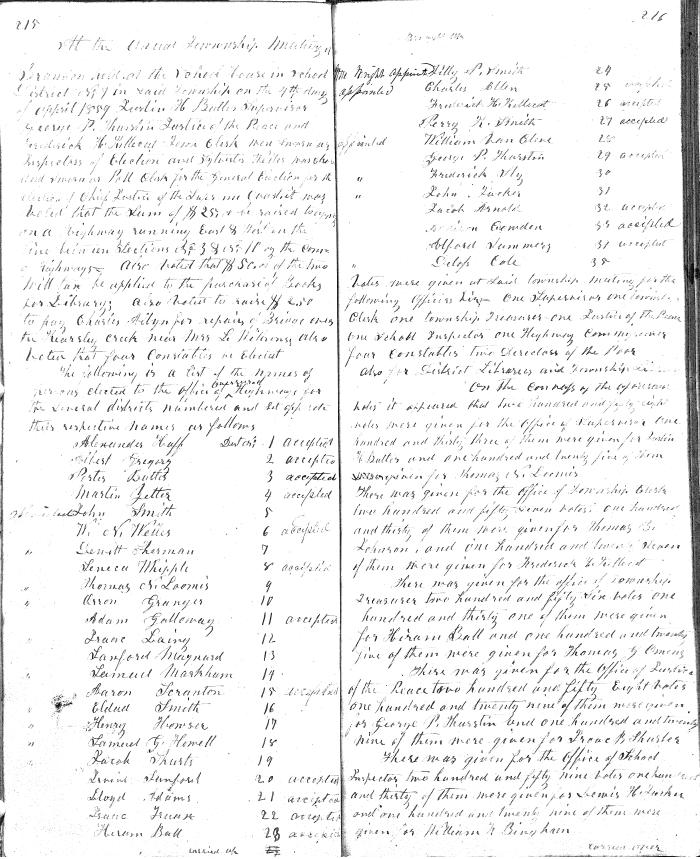 215
At the Annual Township Meeting of
Brandon held at the School house in School
District No 7 in said Township on the 4th day
of April 1859 Justin H Butler Supervisor
George P. Thurstin Justice of the Peace and
Frederick H Kellicut Town Clerk was sworn as
Inspectors of Election and was
and sworn as Poll Clerk for the General Election for the
election of Chief Justice of the Supreme Court it was
Voted that the Sum of $25 be raised
on a highway running East & West on the
line between Sections No 3 & 10 by the Com
of Highways also Voted that $50.00 of the two
Mill tax be applied to the purchase of Books
for Library also Voted to raise $2.50
to pay Charles for repairs of Bridge over
the Kearsley creek near Mrs also
Voted that four Constables be Elected
The following is a list of the names of
persons elected to the office of Overseers of Highways for
the several districts numbered and set opposite
their respective names as follows
Alexander Huff District 1 accepted
Albert Gregory 2 accepted
Porter 3 accepted
Martin Jetter 4 accepted
John Smith 5
W. N. 6 accepted
" Dewitt Sherman 7
Seneca Whipple 8 accepted
" Thomas N. Loomis 9
" Arron Granger 10
Adam Galloway 11 accepted
" Isaac Laing 12
" Sanford Maynard 13
" Samuel Markham 14
Aaron Scranton 15 accepted
" Eldad Smith 16
" Henry Howser 17
" Samuel G. Howell 18
" Jacob 19
Sanford 20 accepted
Lloyd Adams 21 accepted
Isaac 22 accepted
Hiram Ball 23 accepted
carried up
216
appointed
Wright Appointed Smith 24
appointed Charles Allen 25 accepted
Frederick H Kellicut 26 accepted
Perry H. Smith 27 accepted
appointed William Van Cline 28
George P. Thurstin 29 accepted
" Frederick Sly 30
" John Tucker 31
Jacob Arnold 32 accepted
Cowden 33 accepted
Alford Summers 34 accepted
" Delos Cole 35
Votes were given at said township meeting for the
following Officers One Supervisor one township
Clerk one township Treasurer one Justice of the Peace
one School Inspector one Highway Commissioner
four Constables two Directors of the Poor
also for District Libraries and Township
On the Canvass of the aforesaid
Votes it appeared that two hundred and fifty eight
votes were given for the Office of Supervisor One
hundred and thirty three of them were given for Justin
H Butler and one hundred and twenty five of them
were given for Thomas N. Loomis
There was given for the Office of Township Clerk
two hundred and fifty seven votes one hundred
and thirty of them were given for Thomas
Johnson, and one hundred and twenty seven
of them were given for Frederick H Kellicut
There was given for the office of Township
Treasurer two hundred and fifty six votes one
hundred and thirty one of them were given
for Hiram Ball and one hundred and twenty
five of them were given for Thomas J Owens
There was given for the Office of Justice
of the Peace two hundred and fifty Eight Votes
one hundred and twenty nine of them were given
for George P. Thurstin and one hundred and twenty
nine of them were given for Isaac B Thurber
There was given for the Office of School
Inspector two hundred and fifty nine votes one hundred
and thirty of them were given for Lewis H.
and one hundred and twenty nine of them were
given for William H Bingham
carried over